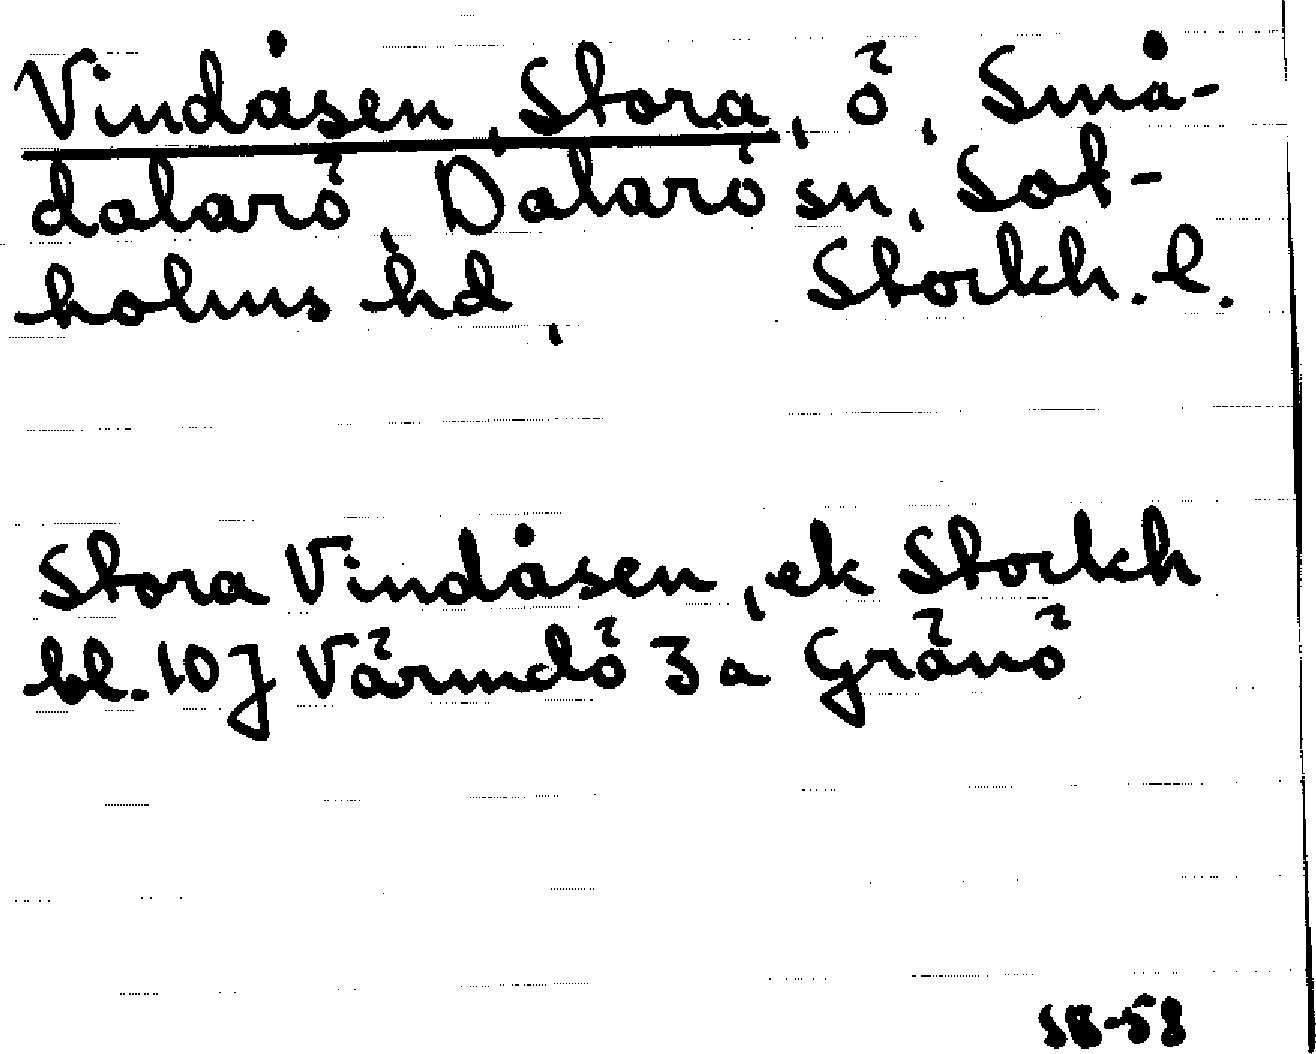 Vindåsen, Stora, ö, Små-
dalarö, Dalarö sn, Sot-
holms hd, Stockh. l.
Stora Vindåsen, ek Stockh
bl. 10J Värmdö 3a Gränö
SB-58